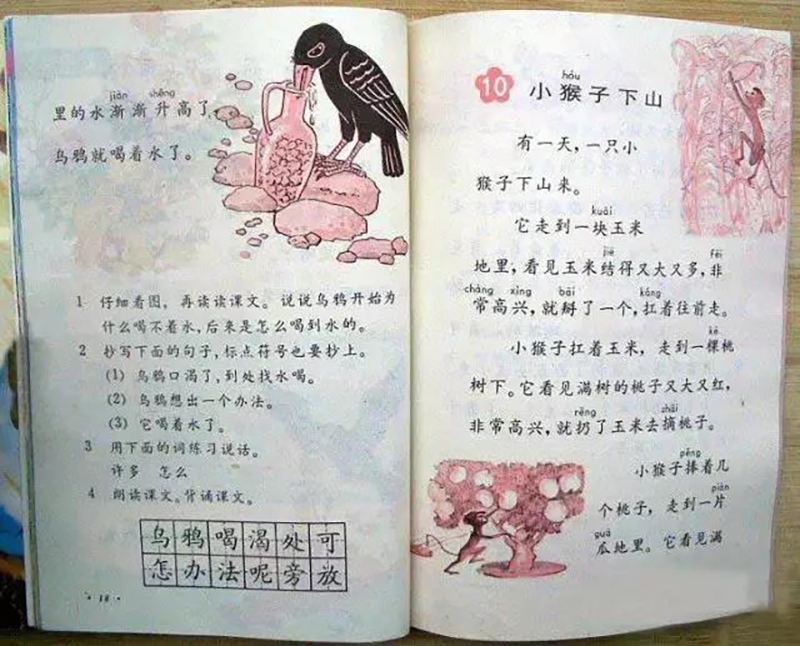 jiàn shēng
里的水渐渐升高了,
乌鸦就喝着水了。
1 仔细看图，再读读课文。说说乌鸦开始为
什么喝不着水,后来是怎么喝到水的。
2 抄写下面的句子,标点符号也要抄上。
(1) 乌鸦口渴了,到处找水喝。
(2) 乌鸦想出一个办法。
(3) 它喝着水了。
3 用下面的词练习说话。
许多 怎么
4 朗读课文。背诵课文。
乌鸦喝渴处可
怎办法呢旁放
10
hóu
小猴子下山
有一天，一只小
猴子下山来。
kuài
它走到一块玉米
jiē fēi
地里，看见玉米结得又大又多，非
cháng xìng bāi káng
常高兴，就掰了一个,扛着往前走。
kē
小猴子扛着玉米，走到一棵桃
树下。它看见满树的桃子又大又红，
rēng zhāi
非常高兴，就扔了玉米去摘桃子。
pěng
小猴子捧着几
piàn
个桃子，走到一片
guā
瓜地里。它看见满